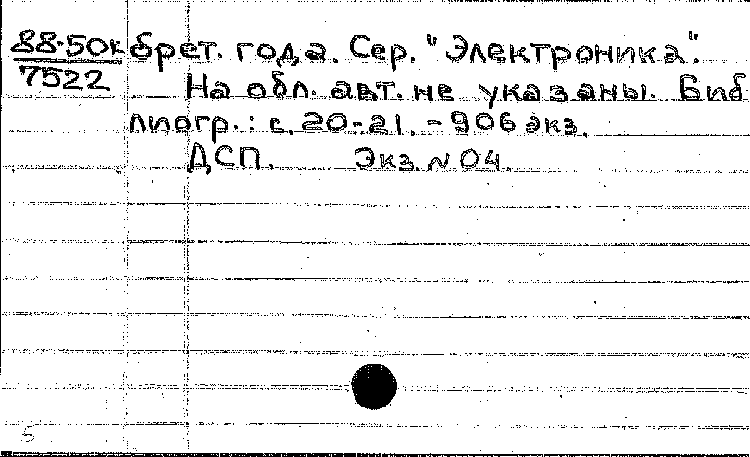 88-50к брет. года. Сер. "Электроника".
7522
На обл. авт. не указаны. Биб
лиогр.: с. 20-21. - 906 экз.
ДСП. Экз. N 04.
5